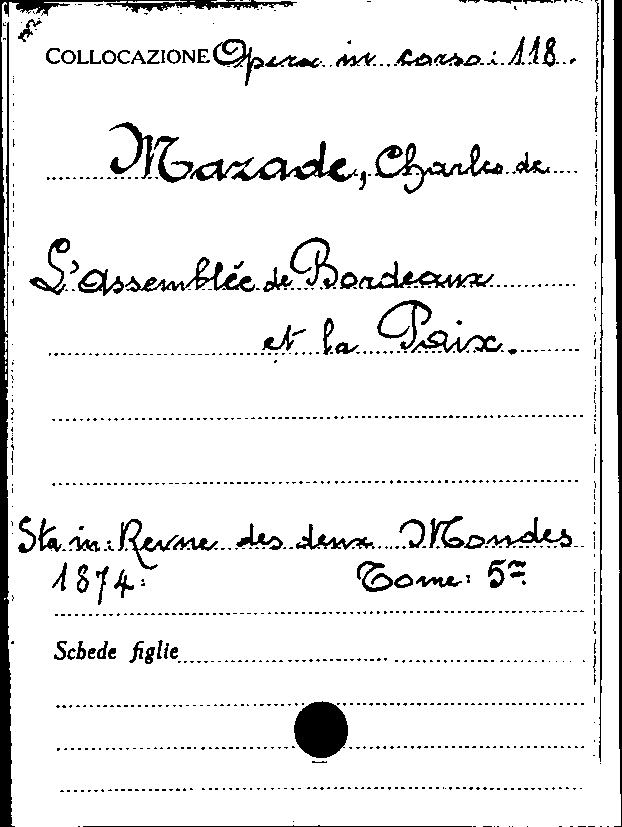 COLLOCAZIONE Opera in corso: 118.
Mazade, Charles de
L'assemblée de Bordeaux
et la Paix.
Sta in: Revue des deux Mondes
1874: Tome: 5me
Schede figlie